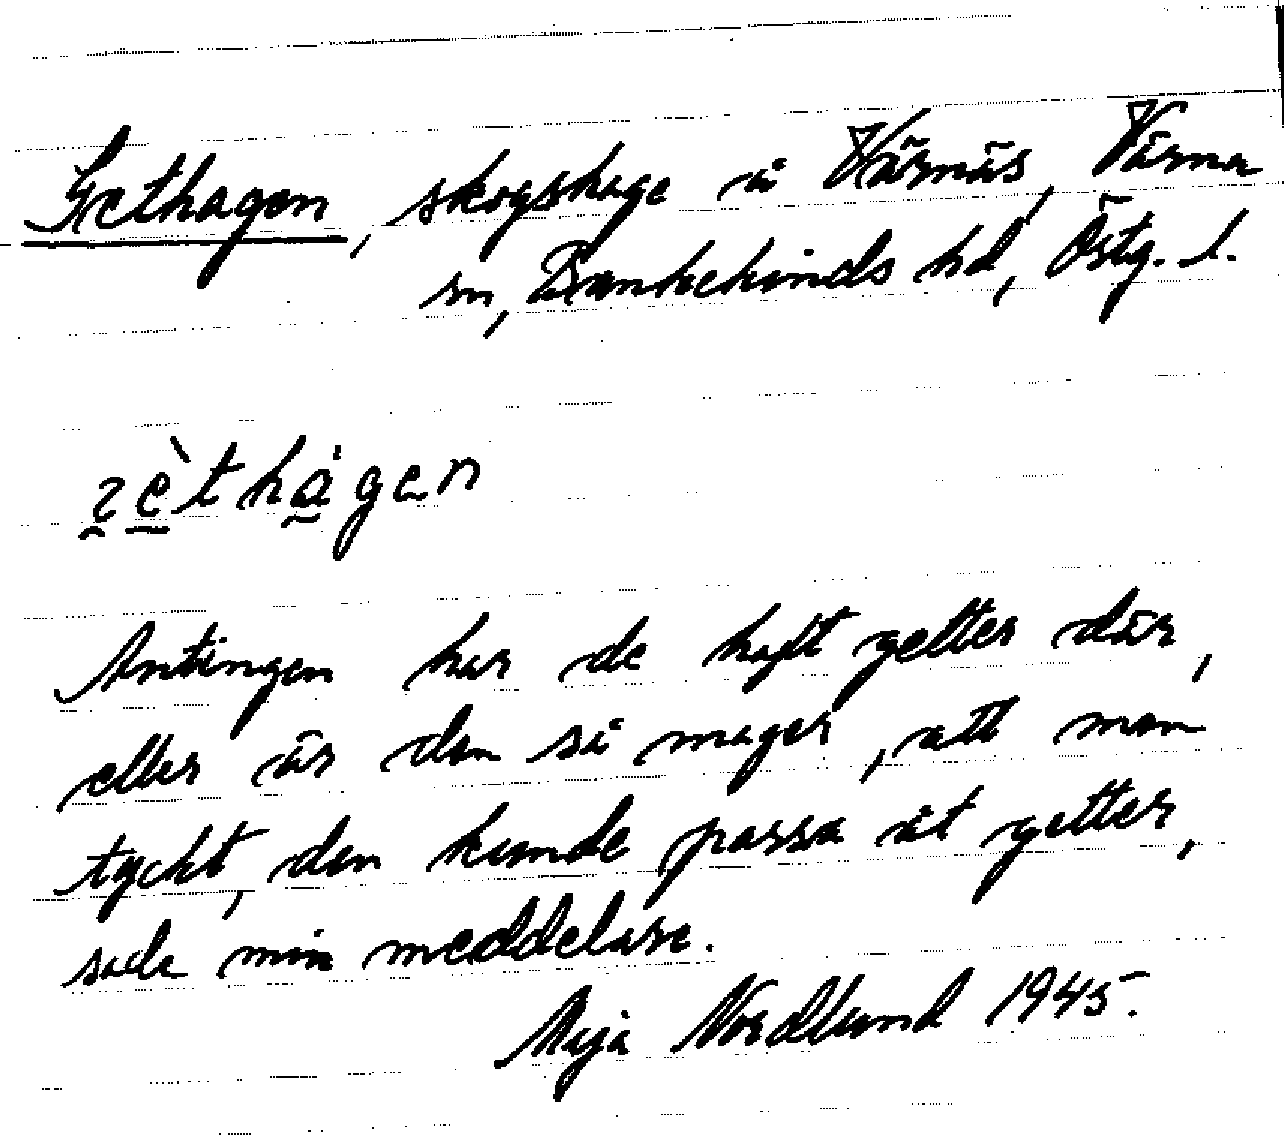 Gethagen, skogshage å Värnäs, Värna
sn, Hanekinds hd, Östg. l.
ɀèthágen
Antingen har de haft getter där,
eller är den så mager, att man
tyckt, den kunde passa åt getter,
sade min meddelare.
Maja Nordlund 1945.